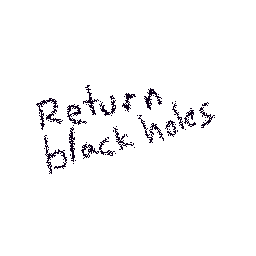 Return
black holes